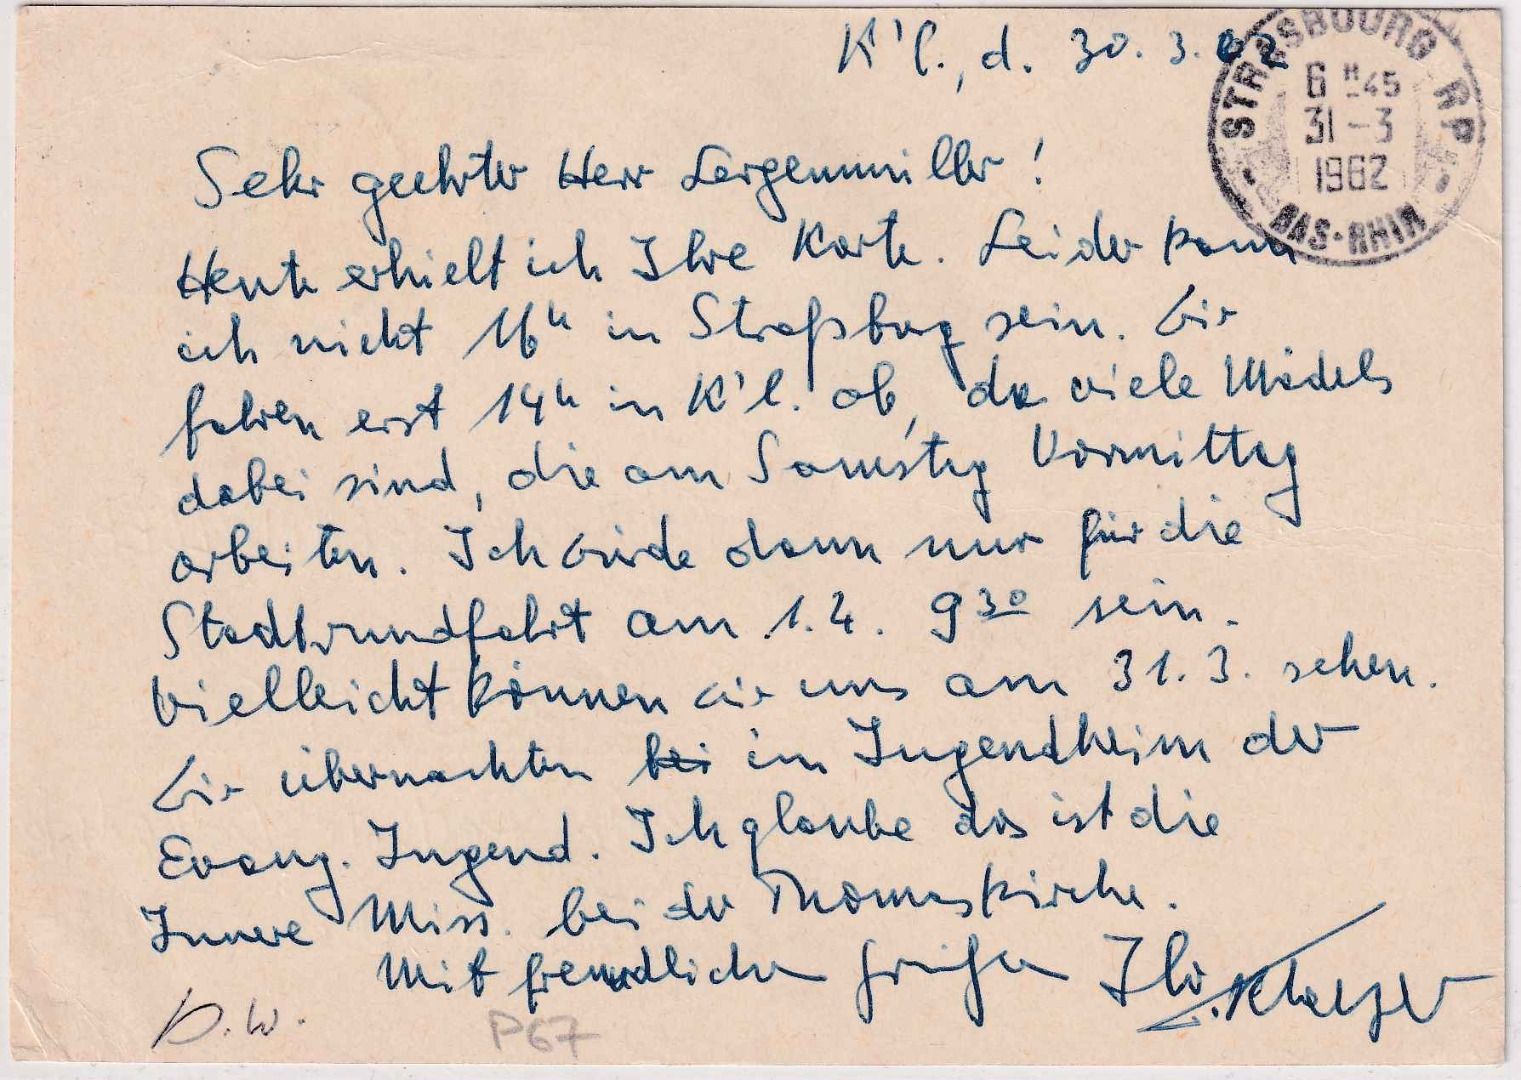 K'l., d. 30. 3. 62
STRASBOURG RP
6 H 45
31 - 3
1962
BAS-RHIN
Sehr geehrter Herr Lergenmüller!
Heute erhielt ich Ihre Karte. Leider kann
ich nicht 16h in Straßburg sein. Wir
fahren erst 14h in K'l. ab, da viele Mädels
dabei sind, die am Samstag Vormittag
arbeiten. Ich würde dann nur für die
Stadtrundfahrt am 1.4. 9 30 sein.
Vielleicht können wir uns am 31.3. sehen.
Wir übernachten bei im Jugendheim der
Evang. Jugend. Ich glaube das ist die
Innere Miss. bei der Thomaskirche.
Mit freundlichen Grüßen Ihr
D.W.
P67